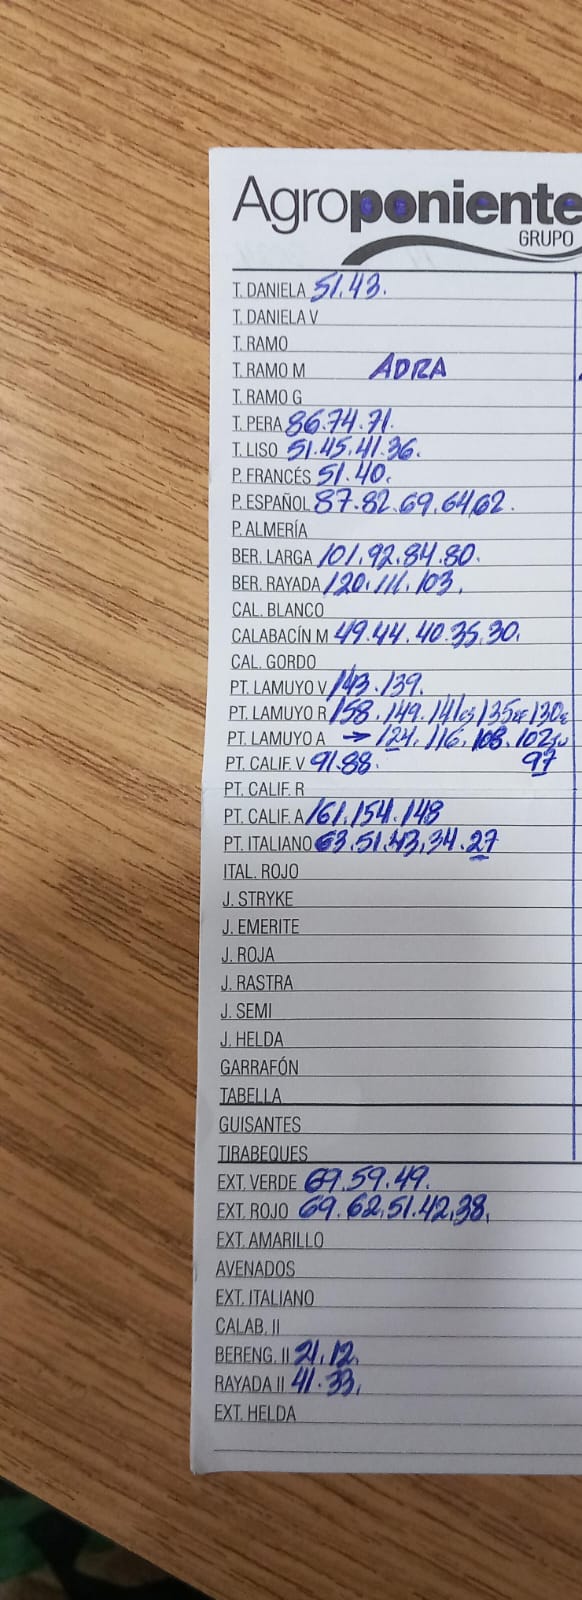 Agroponiente
GRUPO
T. DANIELA 51.43.
T. DANIELA V
T. RAMO
T. RAMO M ADRA
T. RAMO G
T. PERA 86.74.71.
T. LISO 51.45.41.36.
P. FRANCÉS 51.40.
P. ESPAÑOL 87.82.69.64.62.
P. ALMERÍA
BER. LARGA 101.92.84.80.
BER. RAYADA 120.111.103.
CAL. BLANCO
CALABACÍN M 49.44.40.35.30.
CAL. GORDO
PT. LAMUYO V 143.139.
PT. LAMUYO R 158.149.141 135 130
PT. LAMUYO A → 124.116.108.102
PT. CALIF. V 91.88. 97
PT. CALIF. R
PT. CALIF. A 161.154.148
PT. ITALIANO 63.51.43.34.27
ITAL. ROJO
J. STRYKE
J. EMERITE
J. ROJA
J. RASTRA
J. SEMI
J. HELDA
GARRAFÓN
TABELLA
GUISANTES
TIRABEQUES
EXT. VERDE 69.59.49.
EXT. ROJO 69.62.51.42.38.
EXT. AMARILLO
AVENADOS
EXT. ITALIANO
CALAB. II
BERENG. II 21.12.
RAYADA II 41.33.
EXT. HELDA